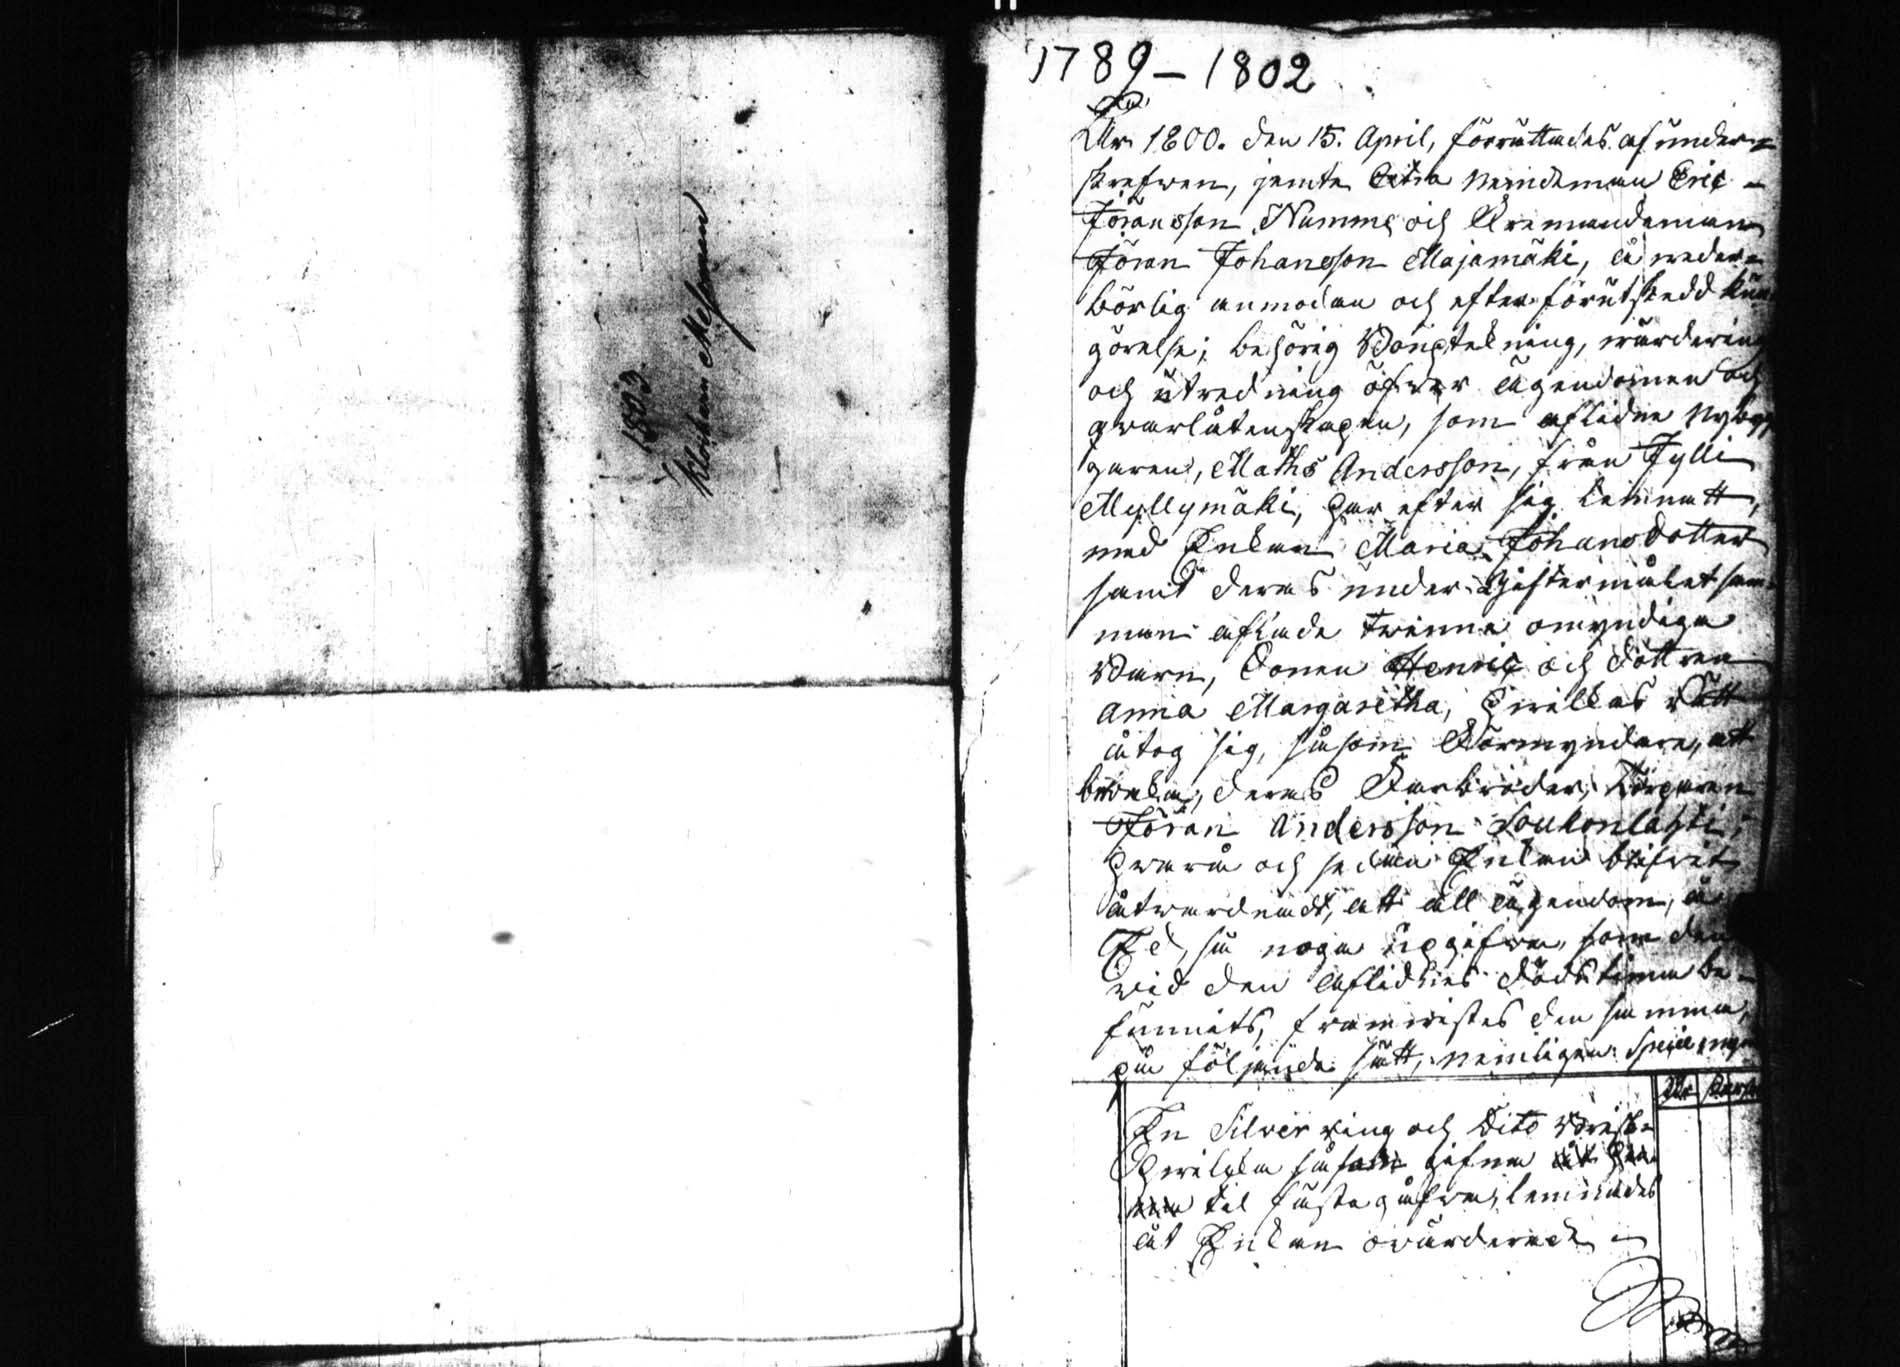 1803.
1789 – 1802
År 1800. den 15. April, förrättades af under-
skrefwen, jemte Nämdeman Eric
Jöransson Nummi och
Jöran Johansson Majamäki, å weder-
börlig anmodan och efter förutskedd kun-
görelse; behörig Bouptekning, wärdering
och utredning öfwer ägendomen och
qvarlåtenskapen, som aflidne Nybyg-
garen, Maths Andersson, från Jylli
Myllymäki, har efter sig lemnatt,
med Enkan Maria Johansdotter
samt deras under Giftermålet sam-
man aflade twenne omyndiga
Barn, Sonen Henric och dottren
Anna Margaretha, hwilkas Rätt
åtog sig, såsom Förmyndare, att
bewaka, deras Farbroder, Torparen
Jöran Andersson Loukonlahti;
hwarå och sedan Enkan blifvit
åtwarnadt, att all ägendom, å
Ed, så noga upgifwa, som den
wid den aflidnes dödstimma be-
funnits, framwistes den samma,
på följande sätt, nemligen:
En Silver ring och Dito
hwilka såsom gifna
til fästegåfwa, lemnades
åt Enkan owärderadt